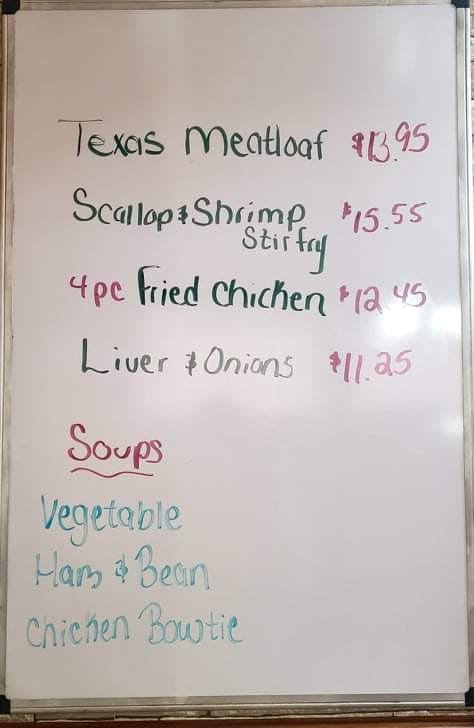 Texas Meatloaf $13.95
Scallop & Shrimp $15.55
Stir fry
4pc Fried Chicken $12.45
Liver & Onions $11.25
Soups
Vegetable
Ham & Bean
Chicken Bowtie